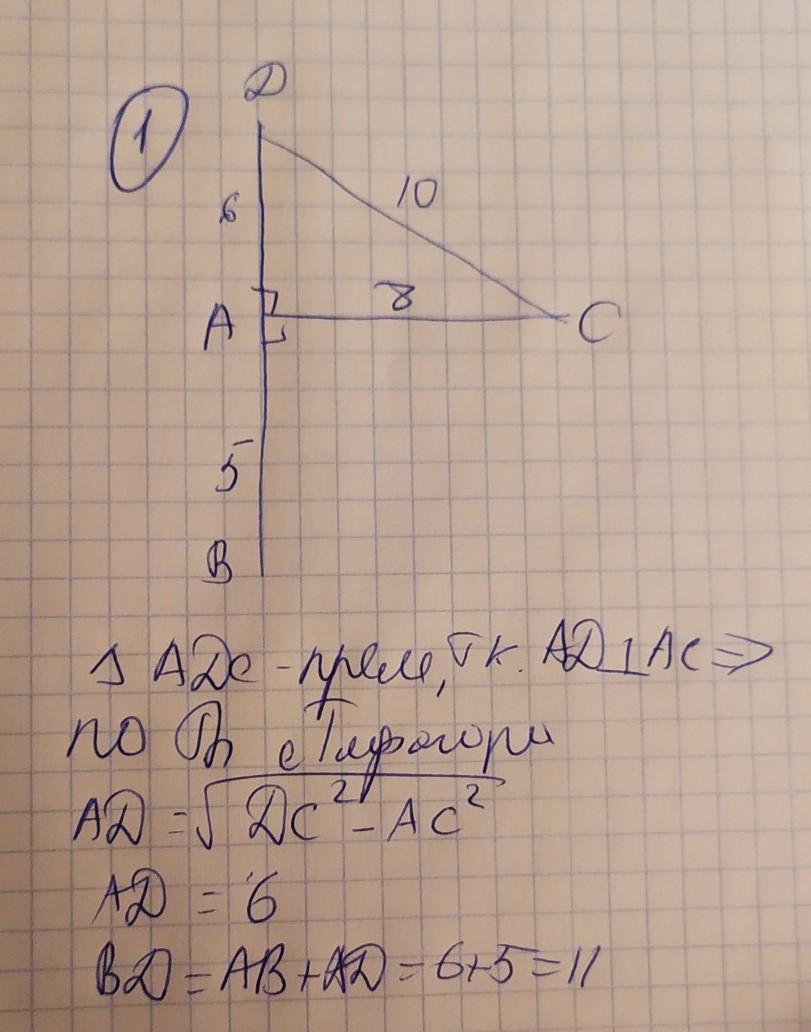 1
D
6
10
A
8
C
5
B
Δ ADC - прям, т.к. AD ⊥ AC ⇒
по Th Пифагора
AD = √DC² - AC²
AD = 6
BD = AB + AD = 6+5 = 11